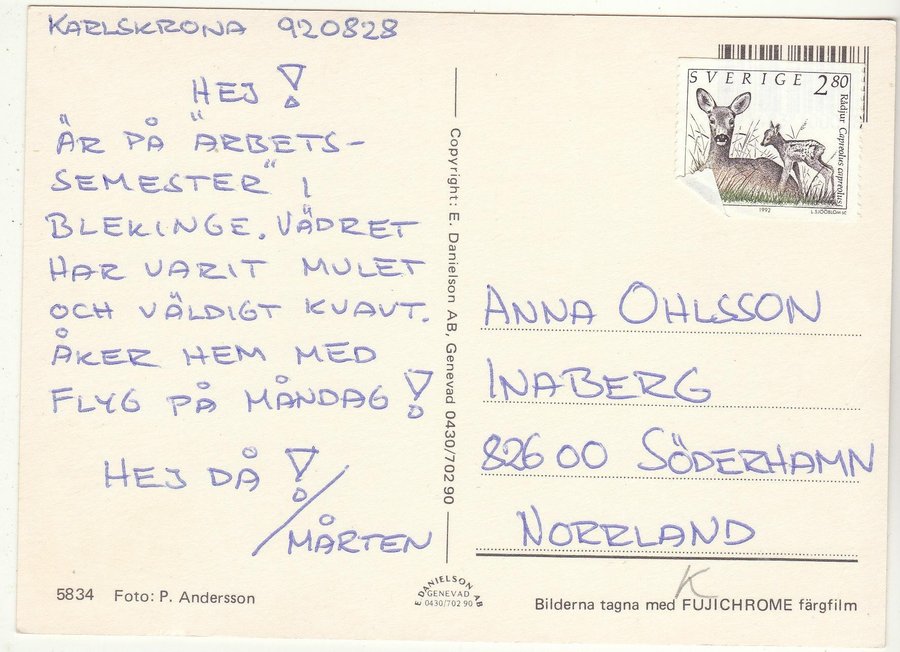 KARLSKRONA 920828
HEJ!
ÄR PÅ "ARBETS-
SEMESTER" I
BLEKINGE. VÄDRET
HAR VARIT MULET
OCH VÄLDIGT KVAVT.
ÅKER HEM MED
FLYG PÅ MÅNDAG!
HEJ DÅ!
/MÅRTEN
5834 Foto: P. Andersson
Copyright: E. Danielson AB, Genevad 0430/702 90
E DANIELSON AB
GENEVAD
0430/702 90
SVERIGE 2 80
Rådjur Capreolus capreolus
1992 L. SJÖÖBLOM SC
ANNA OHLSSON
INABERG
826 00 SÖDERHAMN
NORRLAND
K
Bilderna tagna med FUJICHROME färgfilm